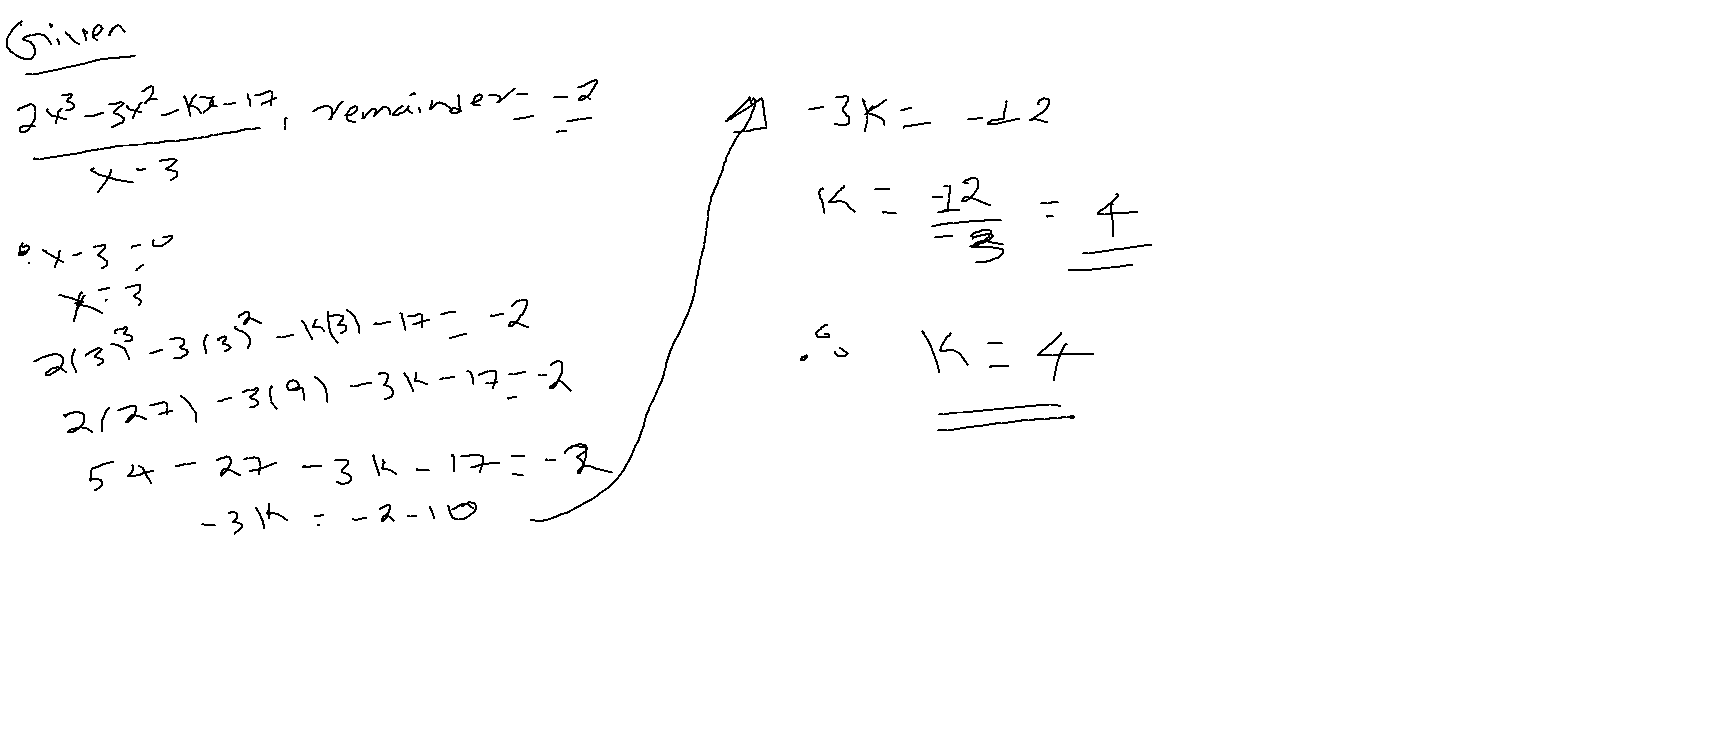 Given
2x³ - 3x² - Kx - 17, remainder = -2
x - 3
x - 3 = 0
x = 3
2(3)³ - 3(3)² - K(3) - 17 = -2
2(27) - 3(9) - 3K - 17 = -2
54 - 27 - 3K - 17 = -2
-3K = -2 - 10
-3K = -12
K = -12/-3 = 4
∴ K = 4